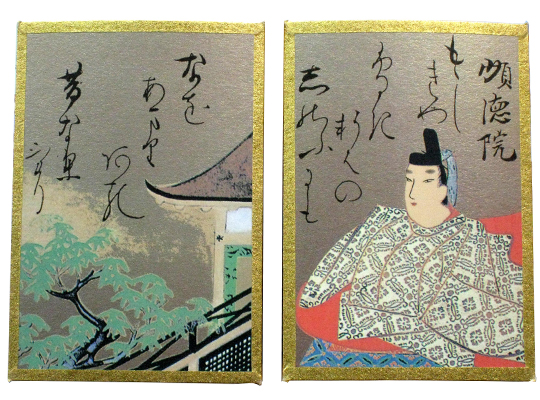 順徳院
もゝし
きや
ふるき
軒はの
しのふにも
なを
あまり
ある
昔なり
けり